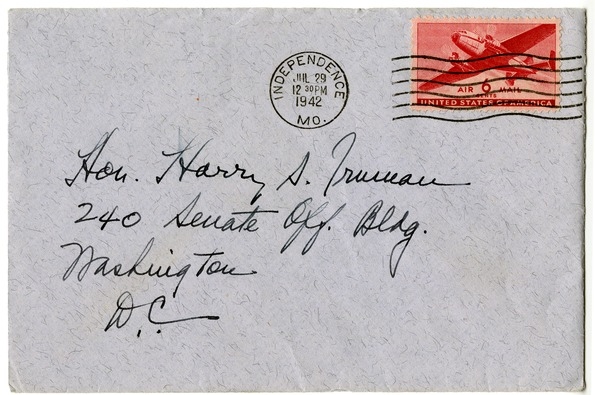 INDEPENDENCE
JUL 29
12 30 PM
1942
MO.
AIR 6 MAIL
CENTS
UNITED STATES OF AMERICA
Hon. Harry S. Truman
240 Senate Off. Bldg.
Washington
D.C.